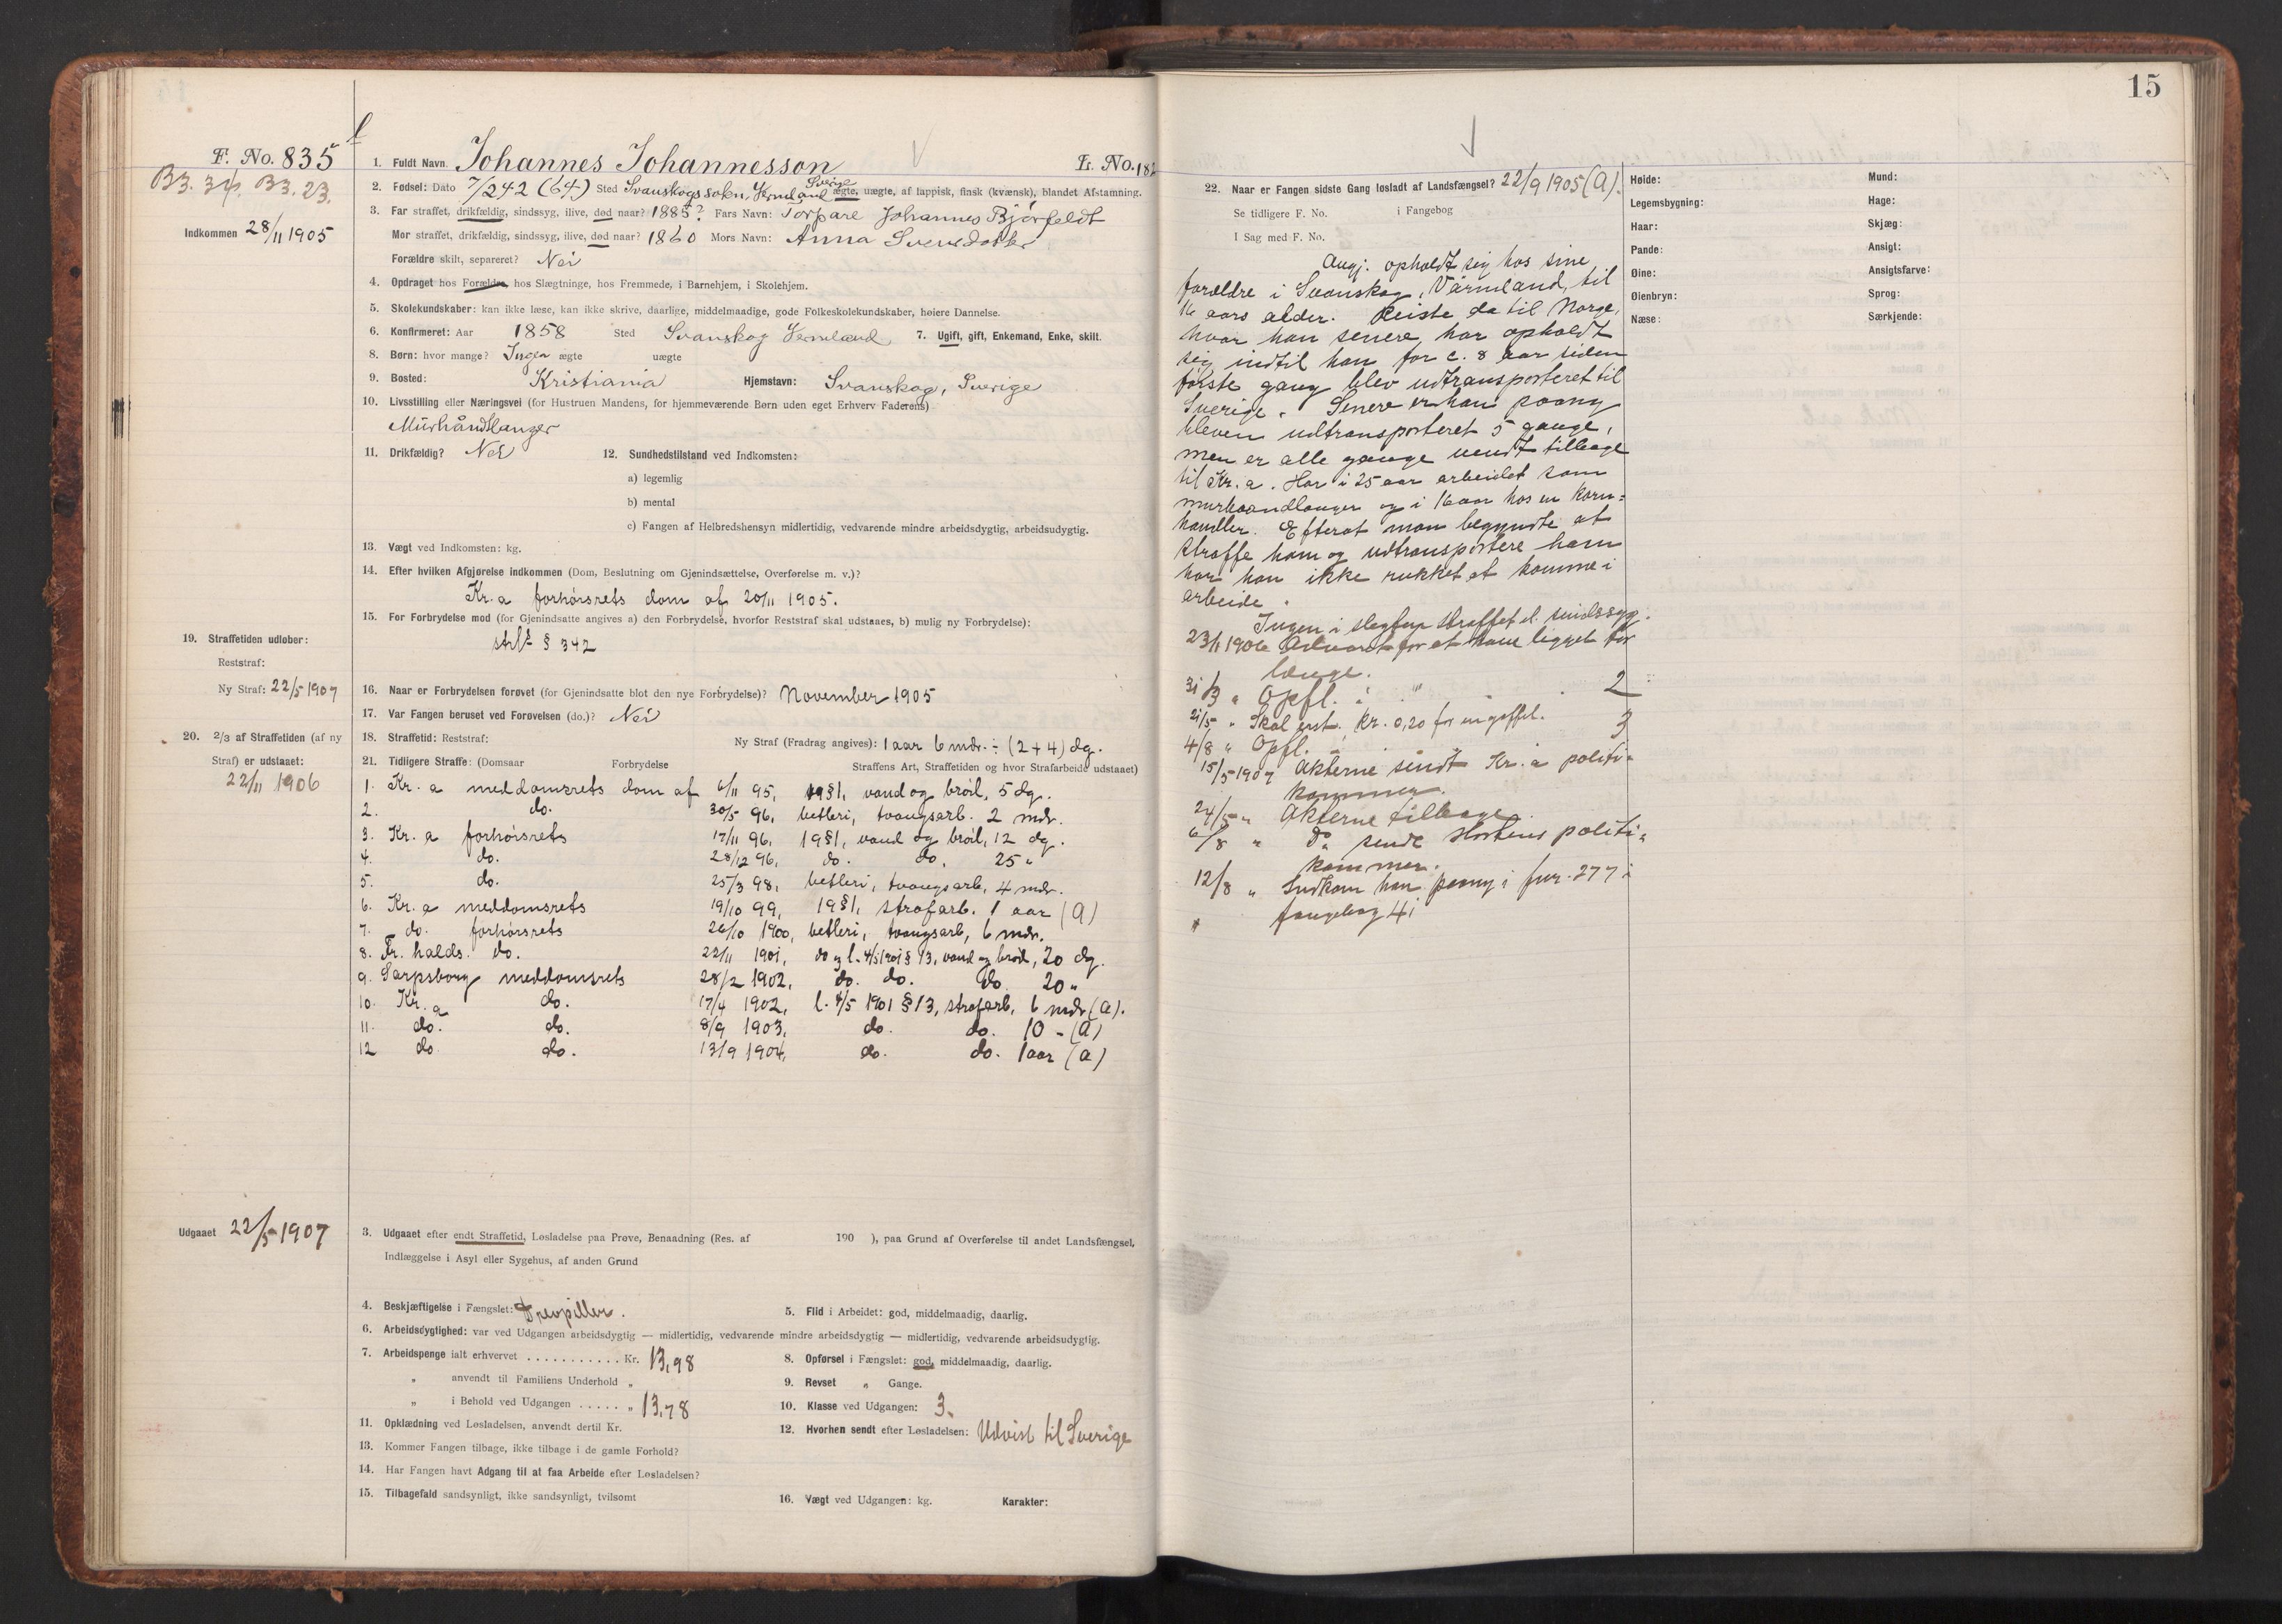 F. No. 835
B3. 34. B3. 23.
Indkommen 28/11 1905
1. Fuldt Navn. Johannes Johannesson
L. No. 182
2. Fødsel: Dato 7/2 42 (64) Sted Svanskogs sokn, Vermland Sverige ægte, uægte, af lappisk, finsk (kvænsk), blandet Afstamning.
3. Far straffet, drikfældig, sindssyg, ilive, død naar? 1885? Fars Navn: Torpare Johannes Bjørfeldt
Mor straffet, drikfældig, sindssyg, ilive, død naar? 1860 Mors Navn: Anna Svensdotter
Forældre skilt, separeret? Nei
4. Opdraget hos Forældre, hos Slægtninge, hos Fremmede, i Barnehjem, i Skolehjem.
5. Skolekundskaber: kan ikke læse, kan ikke skrive, daarlige, middelmaadige, gode Folkeskolekundskaber, høiere Dannelse.
6. Konfirmeret: Aar 1858 Sted Svanskog Vermland 7. Ugift, gift, Enkemand, Enke, skilt.
8. Børn: hvor mange? Ingen ægte uægte
9. Bosted: Kristiania Hjemstavn: Svanskog, Sverige
10. Livsstilling eller Næringsvei (for Hustruen Mandens, for hjemmeværende Børn uden eget Erhverv Faderens)
Mürhåndlanger
11. Drikfældig? Nei 12. Sundhedstilstand ved Indkomsten:
a) legemlig
b) mental
c) Fangen af Helbredshensyn midlertidig, vedvarende mindre arbeidsdygtig, arbeidsudygtig.
13. Vægt ved Indkomsten: kg.
14. Efter hvilken Afgjørelse indkommen (Dom, Beslutning om Gjenindsættelse, Overførelse m. v.)?
Kr.a forhørsrets dom af 20/11 1905.
15. For Forbrydelse mod (for Gjenindsatte angives a) den Forbrydelse, hvorfor Reststraf skal udstaaes, b) mulig ny Forbrydelse):
strfl § 342
19. Straffetiden udløber:
Reststraf:
Ny Straf: 22/5 1907
16. Naar er Forbrydelsen forøvet (for Gjenindsatte blot den nye Forbrydelse)? November 1905
17. Var Fangen beruset ved Forøvelsen (do.)? Nei
20. 2/3 af Straffetiden (af ny
Straf) er udstaaet:
22/11 1906
18. Straffetid: Reststraf: Ny Straf (Fradrag angives): 1 aar 6 mdr. ÷ (2+4) dg.
21. Tidligere Straffe: (Domsaar Forbrydelse Straffens Art, Straffetiden og hvor Strafarbeide udstaaet)
1. Kr.a meddomsrets dom af 6/11 95, 19§1, vand og brød, 5 dg.
2. do. 30/5 96, betleri, tvangsarb. 2 mdr.
3. Kr.a forhørsrets 17/11 96, 19§1, vand og brød, 12 dg.
4. do. 28/12 96, do. do. 25 "
5. do. 25/3 98, betleri, tvangsarb, 4 mdr.
6. Kr.a meddomsrets 19/10 99, 19§1, strafarb. 1 aar (A)
7. do. forhørsrets 26/10 1900, betleri, tvangsarb, 6 mdr.
8. Fr. halds. do. 22/11 1901, do og l. 4/5 1901 § 13, vand og brød, 20 dg.
9. Sarpsborg meddomsrets 28/2 1902, do. do. do. 20 "
10. Kr.a do. 17/4 1902, l. 4/5 1901 § 13, strafarb, 6 mdr (a).
11. do. do. 8/9 1903, do. do. 10 - (a)
12 do. do. 13/9 1904, do. do. 1 aar (a)
Udgaaet 22/5 1907
3. Udgaaet efter endt Straffetid, Løsladelse paa Prøve, Benaadning (Res. af 190 ), paa Grund af Overførelse til andet Landsfængsel,
Indlæggelse i Asyl eller Sygehus, af anden Grund
4. Beskjæftigelse i Fængslet: Drevpiller. 5. Flid i Arbeidet: god, middelmaadig, daarlig.
6. Arbeidsdygtighed: var ved Udgangen arbeidsdygtig — midlertidig, vedvarende mindre arbeidsdygtig — midlertidig, vedvarende arbeidsudygtig.
7. Arbeidspenge ialt erhvervet ........... Kr. 13,98 8. Opførsel i Fængslet: god, middelmaadig, daarlig.
" anvendt til Familiens Underhold " 9. Revset " Gange.
" i Behold ved Udgangen ..... " 13,78 10. Klasse ved Udgangen: 3.
11. Opklædning ved Løsladelsen, anvendt dertil Kr. 12. Hvorhen sendt efter Løsladelsen: Udvist til Sverige
13. Kommer Fangen tilbage, ikke tilbage i de gamle Forhold?
14. Har Fangen havt Adgang til at faa Arbeide efter Løsladelsen?
15. Tilbagefald sandsynligt, ikke sandsynligt, tvilsomt 16. Vægt ved Udgangen: kg. Karakter:
15
22. Naar er Fangen sidste Gang løsladt af Landsfængsel? 22/9 1905 (a).
Se tidligere F. No. i Fangebog
I Sag med F. No.
Angj. opholdt sig hos sine
forældre i Svanskog, Värmland, til
16 aars alder. Reiste da til Norge,
hvor han senere har opholdt
sig indtil han for c. 8 aar siden
første gang blev udtransporteret til
Sverige. Senere er han paany
bleven udtransporteret 5 gange,
men er alle gange vendt tilbage
til Kr.a. Har i 25 aar arbeidet som
murhaandlanger og i 16 aar hos en korn-
handler. Efterat man begyndte at
straffe ham og udtransportere ham
har han ikke rukket at komme i
arbeide.
Ingen i slegten straffet el. sindssyg.
23/1 1906 Advaret for at have ligget for
længe.
31/3 " Opfl. " 2
21/5 " Skal erst. Kr. 0,20 for en gaffel.
4/8 " Opfl. 3
15/5 1907 Akterne sendt Kr.a politi-
kammer.
24/5 " Akterne tilbage.
6/8 " Do sendt Hortens politi-
kammer.
12/8 " Indkom han paany i fnr. 277 i
fangebog 4i
Høide:
Legemsbygning:
Haar:
Pande:
Øine:
Øienbryn:
Næse:
Mund:
Hage:
Skjæg:
Ansigt:
Ansigtsfarve:
Sprog:
Særkjende: